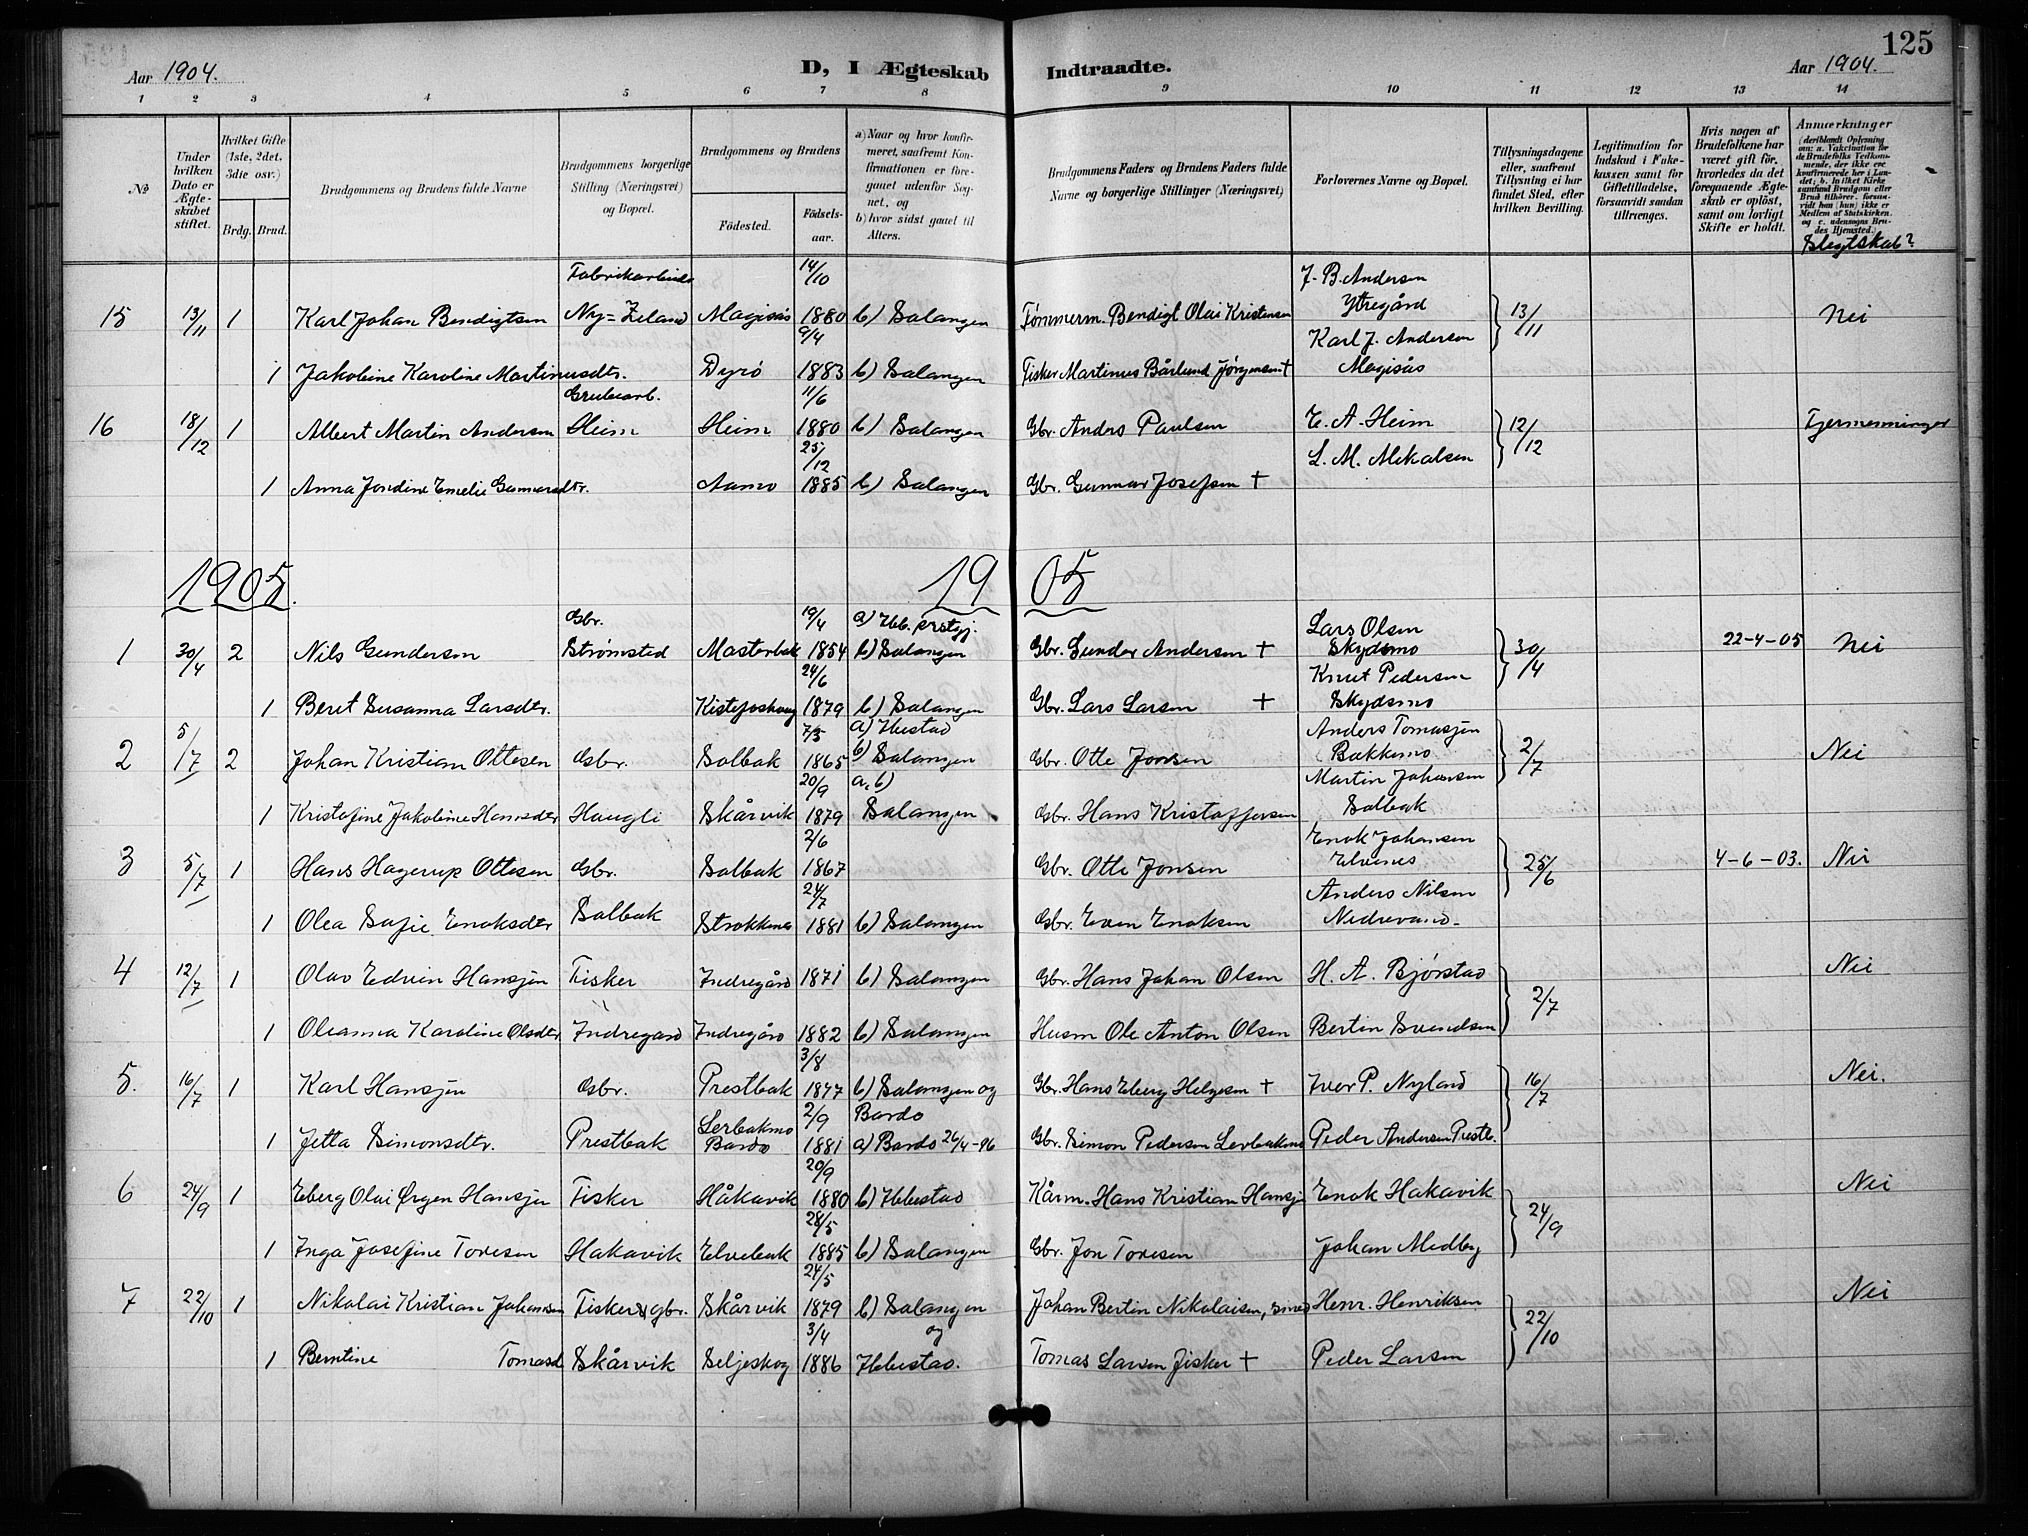 125
Aar 1904.
D, I Ægteskab Indtraadte.
Aar 1904.
1 2 3 4 5 6 7 8 9 10 11 12 13 14
№
Under hvilken Dato er Ægteskabet stiftet.
Hvilket Gifte (1ste, 2det, 3die osv.)
Brdg. Brud.
Brudgommens og Brudens fulde Navne
Brudgommens borgerlige Stilling (Næringsvei) og Bopæl.
Brudgommens og Brudens
Fødested.
Fødselsaar.
a) Naar og hvor konfirmeret, saafremt Konfirmationen er foregaaet udenfor Sognet, og
b) hvor sidst gaaet til Alters.
Brudgommens Faders og Brudens Faders fulde Navne og borgerlige Stillinger (Næringsvei)
Forlovernes Navne og Bopæl.
Tillysningsdagene eller, saafremt Tillysning ei har fundet Sted, efter hvilken Bevilling.
Legitimation for Indskud i Enkekassen samt for Giftetilladelse, forsaavidt saadan tiltrænges.
Hvis nogen af Brudefolkene har været gift før, hvorledes da det foregaaende Ægteskab er opløst, samt om lovligt Skifte er holdt.
Anmærkninger
Slegtskab?
Fabrikarbeider 14/10 J. B. Andersen
15 13/11 1 Karl Johan Bendigtsen Ny-Zeland Magisås 1880 b) Salangen Tømmerm. Bendigt Olai Kristensen Ytregård 13/11 Nei
9/4 Karl J. Andersen
1 Jakobine Karoline Martinusdtr. Dyrö 1883 b) Salangen Fisker Martinus Bårlund Jørgensen † Magisås
Grubearb. 11/6
16 18/12 1 Albert Martin Andersen Heim Heim 1880 b) Salangen Gbr. Anders Paulsen E. A. Heim 12/12 Tjermenninger
25/12 L. M. Mikalsen
1 Anna Jondine Emelie Gunnarsdtr. Aamo 1885 b) Salangen Gbr. Gunnar Josefsen †
1905. 1905
Gbr. 19/4 a) Ibb. prstgj. Lars Olsen
1 30/4 2 Nils Gundersen Strømsted Masterbak 1854 b) Salangen Gbr. Gunder Andersen † Skydsmo 30/4 22-4-05 Nei
24/6 Knut Pedersen
1 Beret Susanna Larsdtr. Kistefoshaug 1879 b) Salangen Gbr. Lars Larsen † Skydsmo
7/3 a) Ibestad Anders Tomasjen
2 5/7 2 Johan Kristian Ottesen Gbr. Solbak 1865 b) Salangen Gbr. Otte Jonsen Bakkemo 2/7 Nei
20/9 a, b) Martin Johansen
1 Kristofine Jakobine Hansdtr Haugli Skårvik 1879 Salangen Gbr. Hans Kristoffersen Solbak
2/6 Enok Johansen
3 5/7 1 Hans Hagerup Ottesen Gbr. Solbak 1867 Gbr. Otte Jonsen Elvenes 25/6 4-6-03. Nei
24/7 Anders Nilsen
1 Olea Sofie Enoksdtr Solbak Strokkenes 1881 b) Salangen Gbr. Even Enoksen Nedrevand.
4 12/7 1 Olav Edvin Hansjen Fisker Indregård 1871 b) Salangen Gbr. Hans Johan Olsen H. A. Bjørstad 2/7 Nei
1 Oleanna Karoline Olsdtr Indregard Indregård 1882 b) Salangen Husm Ole Anton Olsen Bertin Svendsen
3/8
5. 16/7 1 Karl Hansjen Gbr. Prestbak 1877 b) Salangen og Gbr. Hans Eberg Helgesen † Iver P. Nyland 16/7 Nei.
Lerbakmo 2/9 Bardo
1 Jetta Simonsdtr. Prestbak Bardo 1881 a) Bardo 26/4-96 Gbr. Simon Pedersen Lerbakmo Peder Andersen Prestb.
20/9
6 24/9 1 Eberg Olai Ørgen Hansjen Fisker Håkavik 1880 b) Ibbestad Kårm. Hans Kristian Hansjen Enok Hakavik 24/9 Nei
28/5
1 Inga Josefine Toresen Hakavik Elvebak 1885 b) Salangen Gbr. Jon Toresen Johan Medby
24/5
7 22/10 1 Nikolai Kristian Johansen Fisker gbr. Skårvik 1879 b) Salangen Johan Bertin Nikolaisen, smed Henr. Henriksen 22/10 Nei
3/4 og
1 Berntine Tomasd Skårvik Seljeskog 1886 Ibbestad. Tomas Larsen fisker † Peder Larsen